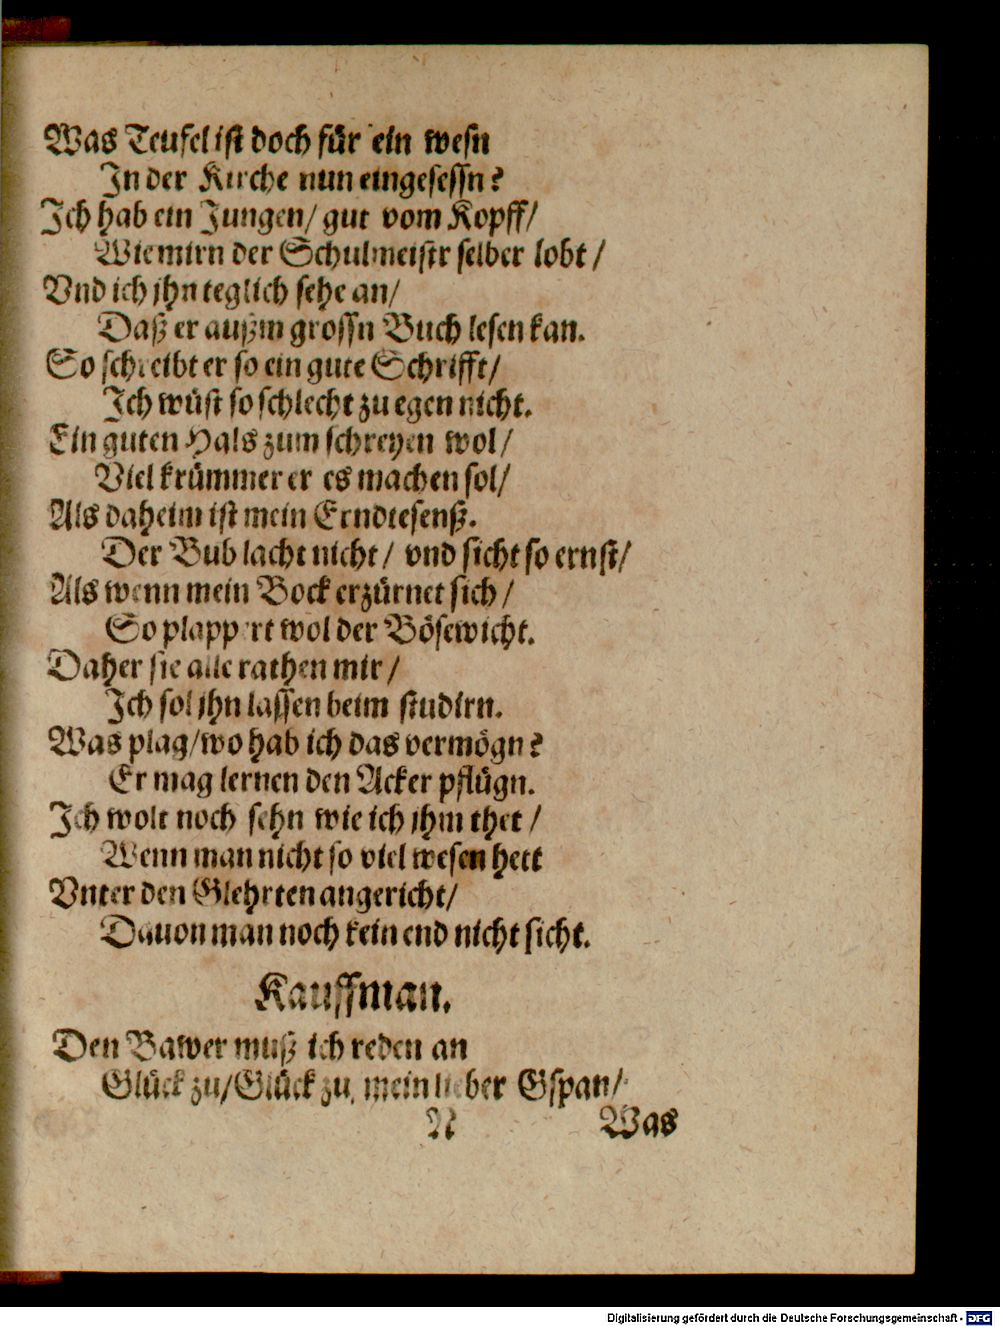 Was Teufel ist doch für ein wesn
In der Kirche nun eingesessn?
Ich hab ein Jungen/ gut vom Kopff/
Wie mirn der Schulmeistr selber lobt/
Vnd ich jhn teglich sehe an/
Daß er außm grossn Buch lesen kan.
So schreibt er so ein gute Schrifft/
Ich wüst so schlecht zu egen nicht.
Ein guten Hals zum schreyen wol/
Viel krümmer er es machen sol/
Als daheim ist mein Erndtesenß.
Der Bub lacht nicht/ vnd sicht so ernst/
Als wenn mein Bock erzürnet sich/
So plappert wol der Bösewicht.
Daher sie alle rathen mir/
Ich sol jhn lassen beim studirn.
Was plag/wo hab ich das vermögn?
Er mag lernen den Acker pflügn.
Ich wolt noch sehn wie ich jhm thet/
Wenn man nicht so viel wesen hett
Vnter den Glehrten angericht/
Dauon man noch kein end nicht sicht.
Kauffman.
Den Bawer muß ich reden an
Glück zu/Glück zu, mein lieber Gspan/
N Was
Digitalisierung gefördert durch die Deutsche Forschungsgemeinschaft - DFG